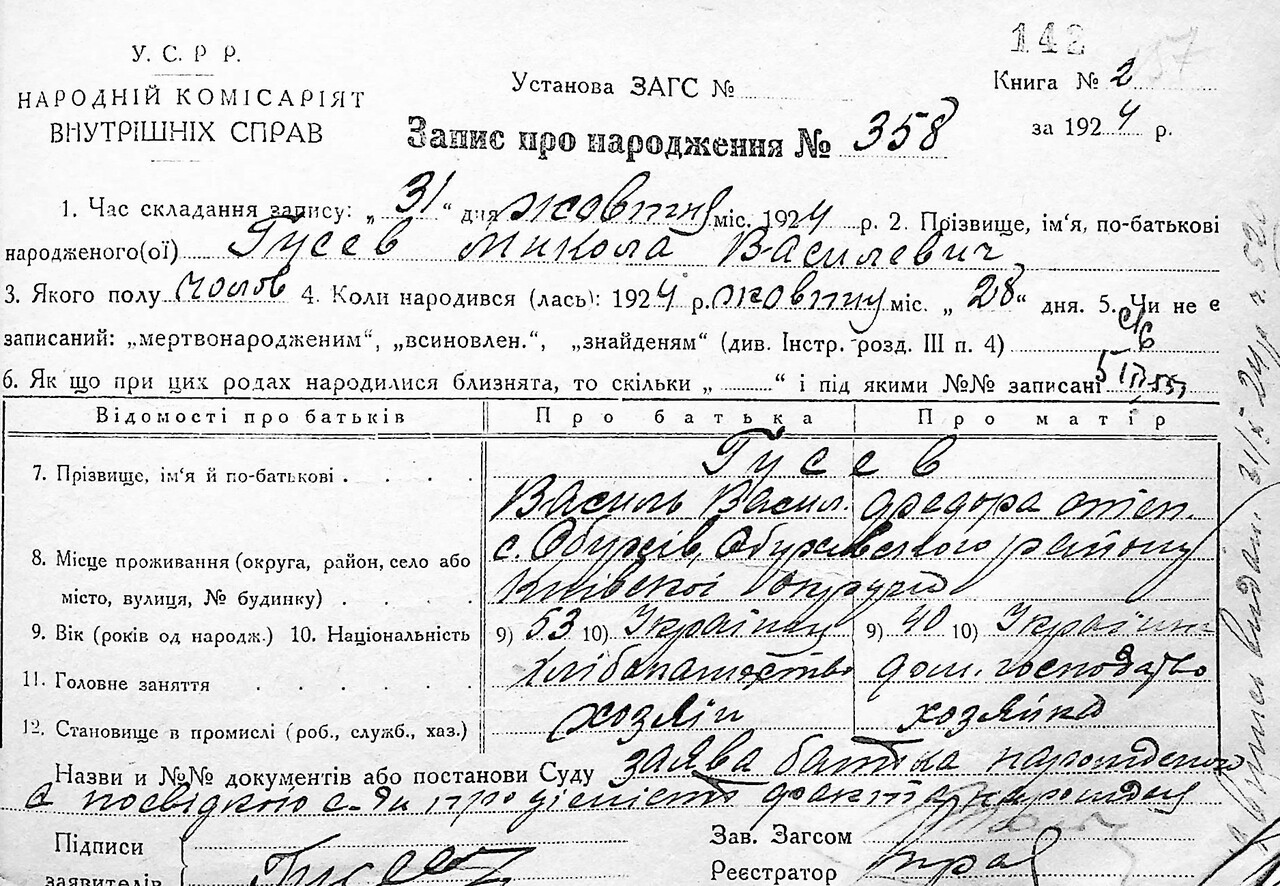 142
157
У. С. Р Р.
НАРОДНІЙ КОМІСАРІЯТ
ВНУТРІШНІХ СПРАВ
Установа ЗАГС №
Книга № 2
за 1924 р.
Запис про народження № 358
1. Час складання запису: „ 31 “ дня жовтня міс. 1924 р. 2. Прізвище, ім‘я, по-батькові
народженого(ої) Гусев Микола Василевич
3. Якого полу чолов 4. Коли народився (лась): 1924 р. жовтня міс. „ 28 “ дня. 5. Чи не є
записаний: „мертвонародженим“, „всиновлен.“, „знайденям“ (див. Інстр. розд. III п. 4)
6. Як що при цих родах народилися близнята, то скільки „ “ і під якими №№ записані
Відомості про батьків Про батька Про матір
7. Прізвище, ім‘я й по-батькові . . . . Гусев
Василь Васил. Федора
8. Місце проживання (округа, район, село або с. Обухів, Обухівського району
місто, вулиця, № будинку) . . . . Київської округи
9. Вік (років од народж.) 10. Національність 9) 53 10) Українец 9) 40 10) Україн
11. Головне заняття . . . . . . хлібопашество дом. господарство
12. Становище в промислі (роб., служб., хаз.) хозяїн хозяйка
Назви и №№ документів або постанови Суду заява батька
Підписи
заявителів Гусев
Зав. Загсом
Реєстратор